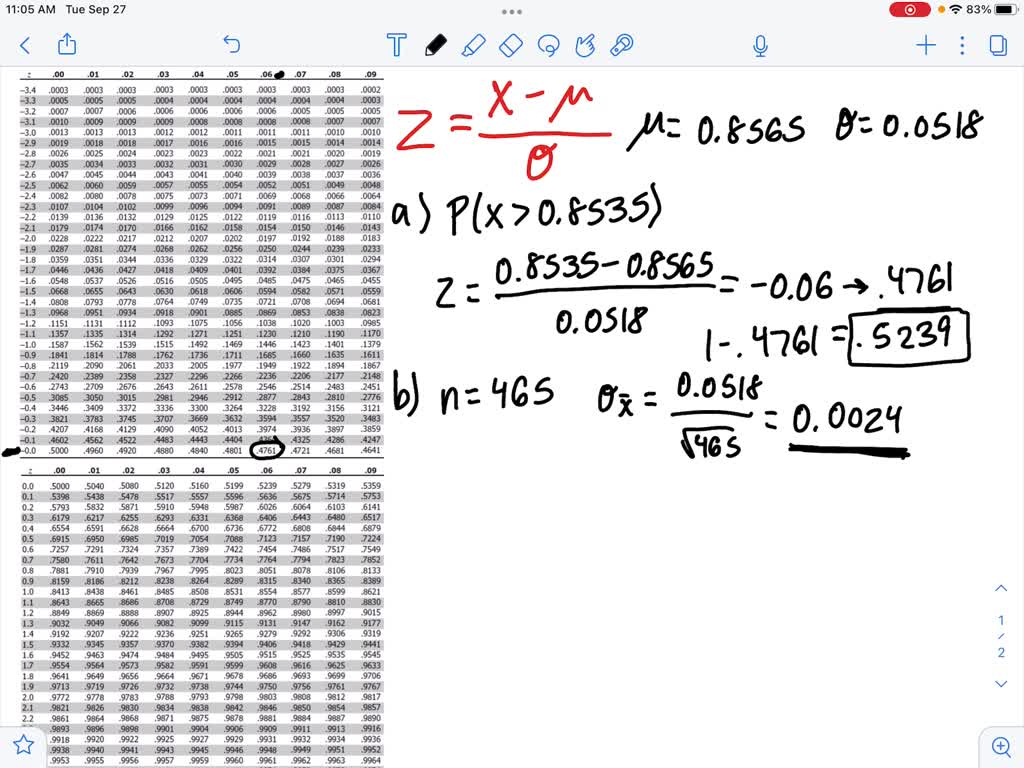 11:05 AM Tue Sep 27
83%
z .00 .01 .02 .03 .04 .05 .06 .07 .08 .09
−3.4 .0003 .0003 .0003 .0003 .0003 .0003 .0003 .0003 .0003 .0002
−3.3 .0005 .0005 .0005 .0004 .0004 .0004 .0004 .0004 .0004 .0003
−3.2 .0007 .0007 .0006 .0006 .0006 .0006 .0006 .0005 .0005 .0005
−3.1 .0010 .0009 .0009 .0009 .0008 .0008 .0008 .0008 .0007 .0007
−3.0 .0013 .0013 .0013 .0012 .0012 .0011 .0011 .0011 .0010 .0010
−2.9 .0019 .0018 .0018 .0017 .0016 .0016 .0015 .0015 .0014 .0014
−2.8 .0026 .0025 .0024 .0023 .0023 .0022 .0021 .0021 .0020 .0019
−2.7 .0035 .0034 .0033 .0032 .0031 .0030 .0029 .0028 .0027 .0026
−2.6 .0047 .0045 .0044 .0043 .0041 .0040 .0039 .0038 .0037 .0036
−2.5 .0062 .0060 .0059 .0057 .0055 .0054 .0052 .0051 .0049 .0048
−2.4 .0082 .0080 .0078 .0075 .0073 .0071 .0069 .0068 .0066 .0064
−2.3 .0107 .0104 .0102 .0099 .0096 .0094 .0091 .0089 .0087 .0084
−2.2 .0139 .0136 .0132 .0129 .0125 .0122 .0119 .0116 .0113 .0110
−2.1 .0179 .0174 .0170 .0166 .0162 .0158 .0154 .0150 .0146 .0143
−2.0 .0228 .0222 .0217 .0212 .0207 .0202 .0197 .0192 .0188 .0183
−1.9 .0287 .0281 .0274 .0268 .0262 .0256 .0250 .0244 .0239 .0233
−1.8 .0359 .0351 .0344 .0336 .0329 .0322 .0314 .0307 .0301 .0294
−1.7 .0446 .0436 .0427 .0418 .0409 .0401 .0392 .0384 .0375 .0367
−1.6 .0548 .0537 .0526 .0516 .0505 .0495 .0485 .0475 .0465 .0455
−1.5 .0668 .0655 .0643 .0630 .0618 .0606 .0594 .0582 .0571 .0559
−1.4 .0808 .0793 .0778 .0764 .0749 .0735 .0721 .0708 .0694 .0681
−1.3 .0968 .0951 .0934 .0918 .0901 .0885 .0869 .0853 .0838 .0823
−1.2 .1151 .1131 .1112 .1093 .1075 .1056 .1038 .1020 .1003 .0985
−1.1 .1357 .1335 .1314 .1292 .1271 .1251 .1230 .1210 .1190 .1170
−1.0 .1587 .1562 .1539 .1515 .1492 .1469 .1446 .1423 .1401 .1379
−0.9 .1841 .1814 .1788 .1762 .1736 .1711 .1685 .1660 .1635 .1611
−0.8 .2119 .2090 .2061 .2033 .2005 .1977 .1949 .1922 .1894 .1867
−0.7 .2420 .2389 .2358 .2327 .2296 .2266 .2236 .2206 .2177 .2148
−0.6 .2743 .2709 .2676 .2643 .2611 .2578 .2546 .2514 .2483 .2451
−0.5 .3085 .3050 .3015 .2981 .2946 .2912 .2877 .2843 .2810 .2776
−0.4 .3446 .3409 .3372 .3336 .3300 .3264 .3228 .3192 .3156 .3121
−0.3 .3821 .3783 .3745 .3707 .3669 .3632 .3594 .3557 .3520 .3483
−0.2 .4207 .4168 .4129 .4090 .4052 .4013 .3974 .3936 .3897 .3859
−0.1 .4602 .4562 .4522 .4483 .4443 .4404 .4325 .4286 .4247
−0.0 .5000 .4960 .4920 .4880 .4840 .4801 .4761 .4721 .4681 .4641
z .00 .01 .02 .03 .04 .05 .06 .07 .08 .09
0.0 .5000 .5040 .5080 .5120 .5160 .5199 .5239 .5279 .5319 .5359
0.1 .5398 .5438 .5478 .5517 .5557 .5596 .5636 .5675 .5714 .5753
0.2 .5793 .5832 .5871 .5910 .5948 .5987 .6026 .6064 .6103 .6141
0.3 .6179 .6217 .6255 .6293 .6331 .6368 .6406 .6443 .6480 .6517
0.4 .6554 .6591 .6628 .6664 .6700 .6736 .6772 .6808 .6844 .6879
0.5 .6915 .6950 .6985 .7019 .7054 .7088 .7123 .7157 .7190 .7224
0.6 .7257 .7291 .7324 .7357 .7389 .7422 .7454 .7486 .7517 .7549
0.7 .7580 .7611 .7642 .7673 .7704 .7734 .7764 .7794 .7823 .7852
0.8 .7881 .7910 .7939 .7967 .7995 .8023 .8051 .8078 .8106 .8133
0.9 .8159 .8186 .8212 .8238 .8264 .8289 .8315 .8340 .8365 .8389
1.0 .8413 .8438 .8461 .8485 .8508 .8531 .8554 .8577 .8599 .8621
1.1 .8643 .8665 .8686 .8708 .8729 .8749 .8770 .8790 .8810 .8830
1.2 .8849 .8869 .8888 .8907 .8925 .8944 .8962 .8980 .8997 .9015
1.3 .9032 .9049 .9066 .9082 .9099 .9115 .9131 .9147 .9162 .9177
1.4 .9192 .9207 .9222 .9236 .9251 .9265 .9279 .9292 .9306 .9319
1.5 .9332 .9345 .9357 .9370 .9382 .9394 .9406 .9418 .9429 .9441
1.6 .9452 .9463 .9474 .9484 .9495 .9505 .9515 .9525 .9535 .9545
1.7 .9554 .9564 .9573 .9582 .9591 .9599 .9608 .9616 .9625 .9633
1.8 .9641 .9649 .9656 .9664 .9671 .9678 .9686 .9693 .9699 .9706
1.9 .9713 .9719 .9726 .9732 .9738 .9744 .9750 .9756 .9761 .9767
2.0 .9772 .9778 .9783 .9788 .9793 .9798 .9803 .9808 .9812 .9817
2.1 .9821 .9826 .9830 .9834 .9838 .9842 .9846 .9850 .9854 .9857
2.2 .9861 .9864 .9868 .9871 .9875 .9878 .9881 .9884 .9887 .9890
.9893 .9896 .9898 .9901 .9904 .9906 .9909 .9911 .9913 .9916
.9918 .9920 .9922 .9925 .9927 .9929 .9931 .9932 .9934 .9936
.9938 .9940 .9941 .9943 .9945 .9946 .9948 .9949 .9951 .9952
.9953 .9955 .9956 .9957 .9959 .9960 .9961 .9962 .9963 .9964
z = (x − μ)/σ μ = 0.8565 σ = 0.0518
a) P(x > 0.8535)
z = (0.8535 − 0.8565)/0.0518 = −0.06 → .4761
1 − .4761 = .5239
b) n = 465 σx̄ = 0.0518/√465 = 0.0024
1
/
2